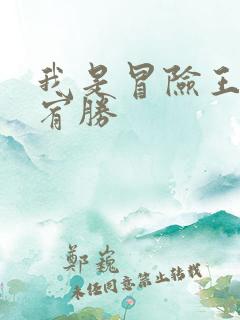 我是冒險王
宥勝
鄭巍
未经同意禁止转载